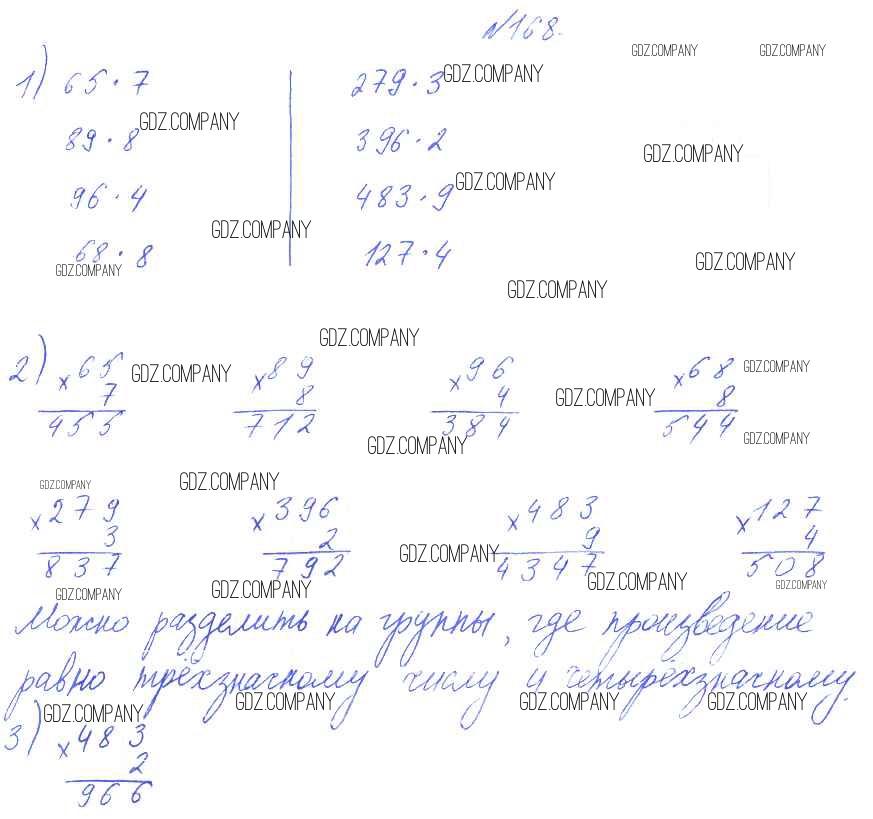 №168.
GDZ.COMPANY GDZ.COMPANY
1) 65 · 7 279 · 3 GDZ.COMPANY
GDZ.COMPANY
89 · 8 396 · 2
GDZ.COMPANY
96 · 4 483 · 9 GDZ.COMPANY
GDZ.COMPANY
68 · 8 127 · 4
GDZ.COMPANY GDZ.COMPANY
GDZ.COMPANY
GDZ.COMPANY
2) × 65 × 89 × 96 × 68 GDZ.COMPANY
GDZ.COMPANY
7 8 4 8
GDZ.COMPANY
455 712 384 544
GDZ.COMPANY GDZ.COMPANY
GDZ.COMPANY GDZ.COMPANY
× 279 × 396 × 483 × 127
3 2 9 4
GDZ.COMPANY
837 792 4347 508
GDZ.COMPANY GDZ.COMPANY GDZ.COMPANY GDZ.COMPANY
Можно разделить на группы, где произведение
равно трёхзначному числу и четырёхзначному.
GDZ.COMPANY GDZ.COMPANY GDZ.COMPANY GDZ.COMPANY
3) × 483
2
966